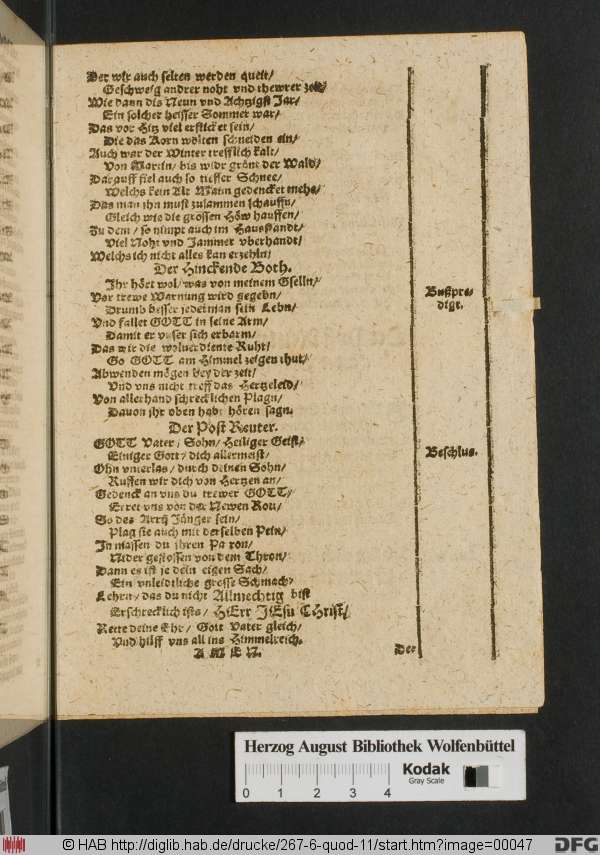 Der wir auch selten werden queit/
Geschweig andrer noht vnd thewrer zeit/
Wie dann dis Neun vnd Achtzigst Jar/
Ein solcher heisser Sommer war/
Das vor Hitz viel ersticket sein/
Die das Korn wolten schneiden ein/
Auch war der Winter trefflich kalt/
Von Martin/ bis widr grönt der Wald/
Darauff fiel auch so tieffer Schnee/
Welchs kein Alt Mann gedencket mehe/
Das man ihn must zusammen schauffn/
Gleich wie die grossen Höw hauffen/
Zu dem/ so nimpt auch im Hausstandt/
Viel Noht vnd Jammer vberhandt/
Welchs ich nicht alles kan erzehln/
Der Hinckende Both.
Ihr hört wol/ was von meinem Gselln/
Vor trewe Warnung wird gegebn/
Drumb besser jederman sein Lebn/
Vnd fallet GOTT in seine Arm/
Damit er vnser sich erbarm/
Das wir die wolverdiente Ruht/
So GOTT am Himmel zeigen thut/
Abwenden mögen bey der zeit/
Vnd vns nicht treff das Hertzeleid/
Von allerhand schrecklichen Plagn/
Dauon jhr oben habt hören sagn.
Bußpre-
digt.
Der Post Reuter.
GOTT Vater/ Sohn/ Heiliger Geist/
Einiger Gott/ dich allermeist/
Ohn vnterlas/ durch deinen Sohn/
Ruffen wir dich von Hertzen an/
Gedenck an vns du trewer GOTT/
Erret vns von der Newen Rott/
So des Arrij Jünger sein/
Plag sie auch mit derselben Pein/
In massen du jhren Patron/
Nider gestossen von dem Thron/
Dann es ist je dein eigen Sach/
Ein vnleidtliche grosse Schmach/
Lehrn/ das du nicht Allmechtig bist
Erschrecklich ists/ HErr JEsu CHrist/
Rette deine Ehr/ Gott Vater gleich/
Vnd hilff vns all ins Himmelreich.
A M E N.
Beschlus.
Der
Herzog August Bibliothek Wolfenbüttel
0 1 2 3 4
Kodak
Gray Scale
© HAB http://diglib.hab.de/drucke/267-6-quod-11/start.htm?image=00047
DFG